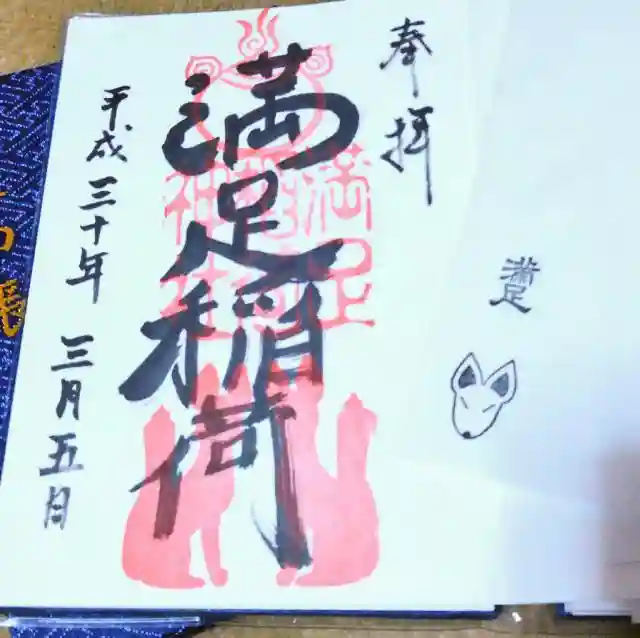 奉拝
満足稲荷
満足
稲荷
神社
平成三十年 三月五日
満足
帳